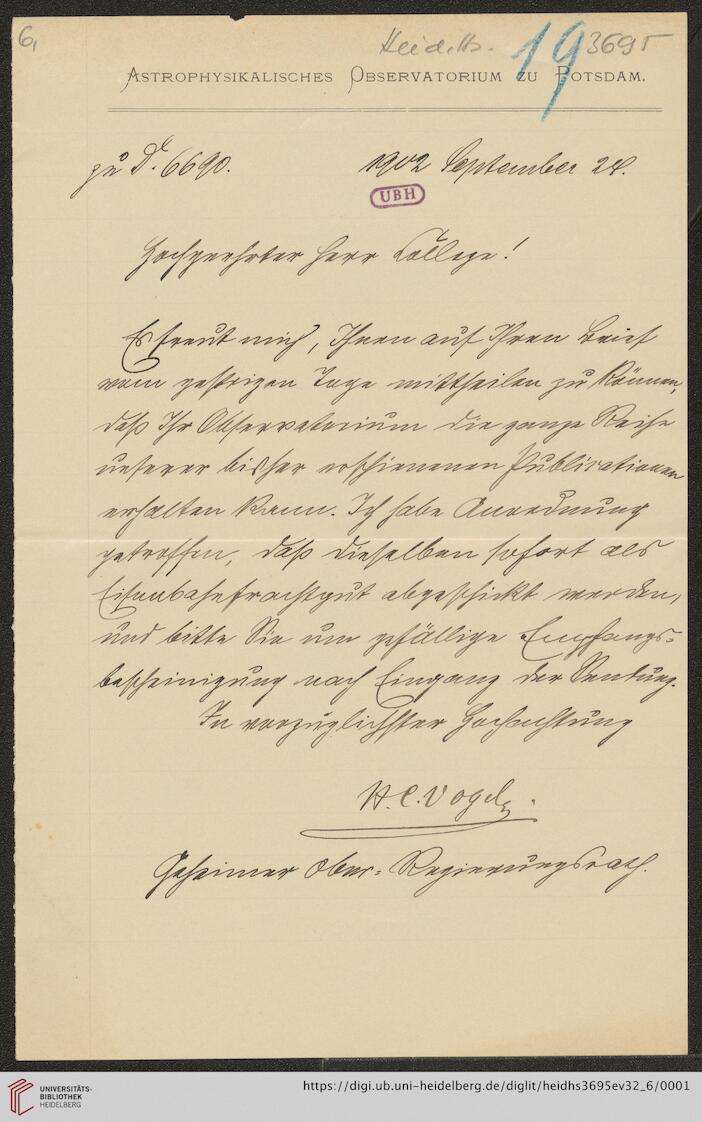 6,
Heid. Hs. 3695
19
ASTROPHYSIKALISCHES OBSERVATORIUM ZU POTSDAM.
zu 6690.
1902 September 24.
UBH
Hochgeehrter Herr College!
Es freut mich, Ihnen auf Ihren Brief
vom gestrigen Tage mittheilen zu können,
daß Ihr Observatorium die ganze Reihe
unserer bisher erschienenen Publicationen
erhalten kann. Ich habe Anordnung
getroffen, daß dieselben sofort als
Eisenbahnfrachtgut abgeschickt werden,
und bitte Sie um gefällige Empfangs-
bescheinigung nach Eingang der Sendung.
In vorzüglichster Hochachtung
H. C. Vogel.
Geheimer Ober-Regierungsrath.
UNIVERSITÄTS-
BIBLIOTHEK
HEIDELBERG
https://digi.ub.uni-heidelberg.de/diglit/heidhs3695ev32_6/0001